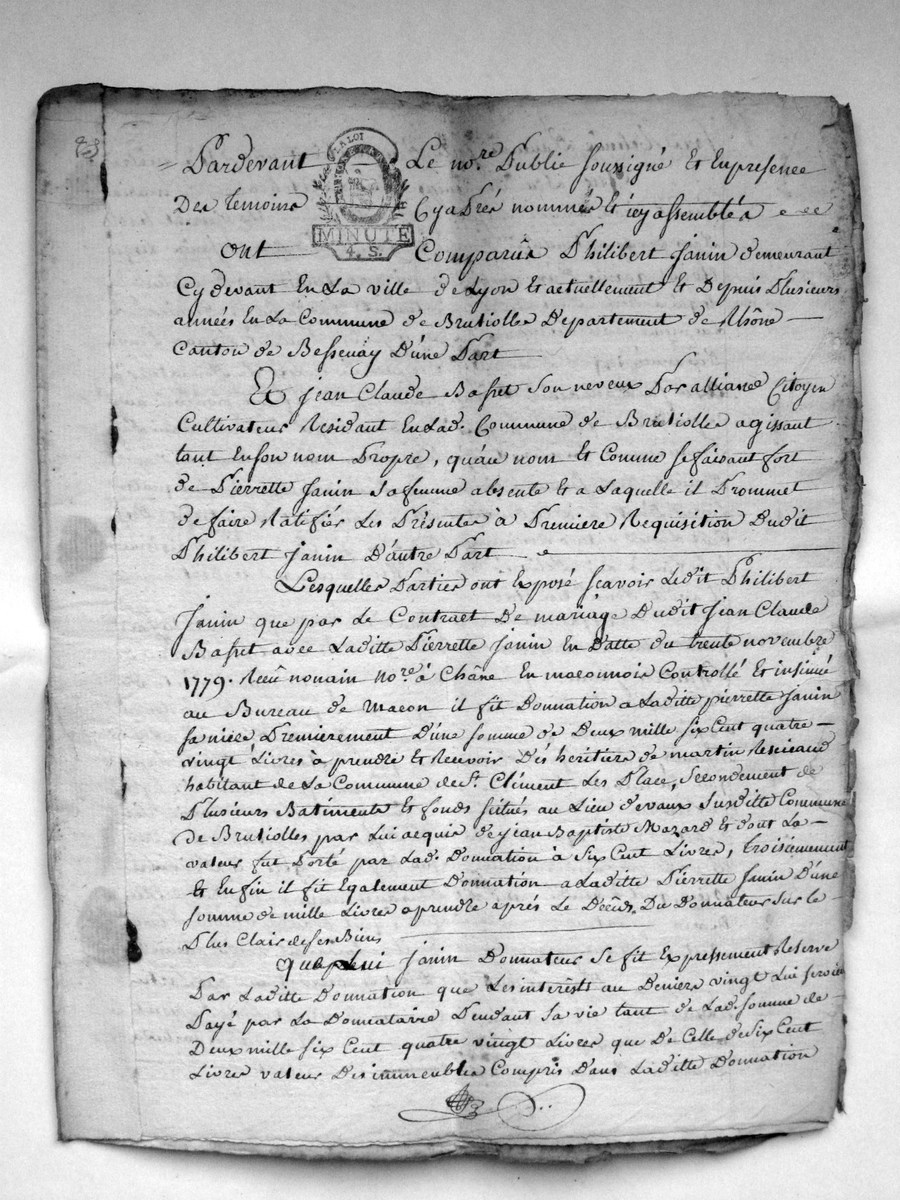 Pardevant Le no.re Public soussigné Et En presence
LA LOI
Des temoins Cy aprés nommés Et icy assemblés
MINUTE
4. S.
ont Comparûs Philibert Janin demeurant
Cy devant En La ville de Lyon Et actuellement Et Depuis Plusieurs
années En La Commune de Brusiolles Departement de Rhône
Canton de Bessenay D'une Part
Et Jean Claude Basset Son neveux Par alliance Citoyen
Cultivateur Residant En Lad. Commune de Brusiolles agissant
tant En son nom Propre, qu'au nom Et Comme se faisant fort
de Pierrette Janin sa femme absente Et a Laquelle il Prommet
de faire Ratifier Les Présentes à Premiere Requisition Dudit
Philibert Janin D'autre Part
Lesquelles Parties ont Exposé scavoir Ledit Philibert
Janin que par Le Contract De mariage Dudit Jean Claude
Basset avec Laditte Pierrette Janin En Datte du trente novembre
1779. Recû nonain no.re à Châne En maconnois Controllé Et insinué
au Bureau de Macon il fit Donnation a Laditte pierrette Janin
sa niéce Premierement D'une somme de Deux mille six Cent quatre
vingt Livres à prendre Et Recevoir Des héritiers de martin
habitant de La Commune de St. Clément Les Place, Secondement de
Plusieurs Batiments Et fonds scitués au Lieu devaux Susditte Commune
de Brusiolles par Lui acquis de Jean Baptiste Mazard Et dont La
valeur fut Porté par Lad. Donnation à Six Cent Livres, troisiémement
Et Enfin il fit Egalement Donnation a Laditte Pierrette Janin D'une
somme de mille Livres aprendre aprés Le Décéds Du Donnateur Sur Le
Plus Clair de ses Biens
que Janin Donnateur Se fit Expressement Reserve
Par Laditte Donnation que Les interêsts au Deniers vingt Lui
Payé par La Donnataire Pendant Sa vie tant de Lad. Somme de
Deux mille six Cent quatre vingt Livres que De Celle de Six Cent
Livres valeur Des immeubles Compris Dans Laditte Donnation